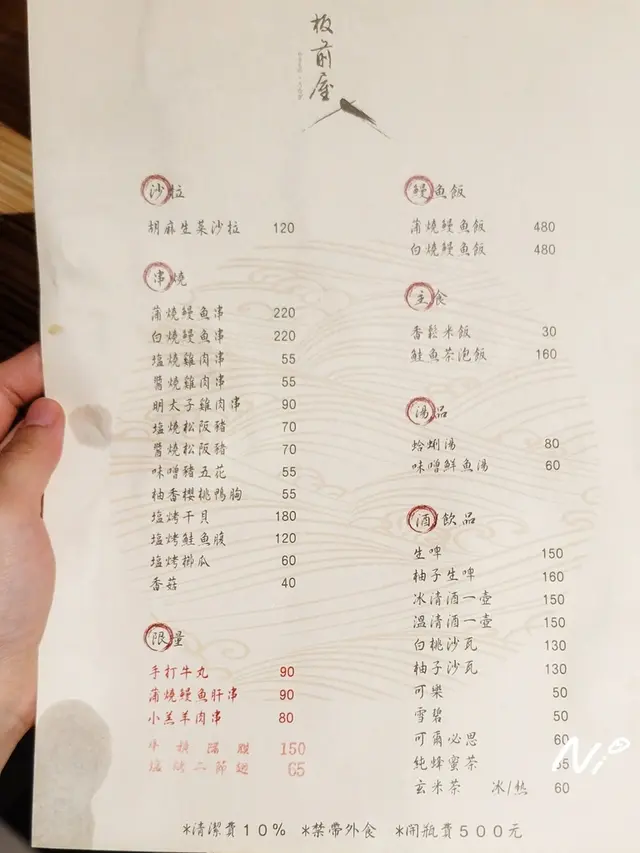 板前屋
沙拉
胡麻生菜沙拉 120
串燒
蒲燒鰻魚串 220
白燒鰻魚串 220
塩燒雞肉串 55
醬燒雞肉串 55
明太子雞肉串 90
塩燒松阪豬 70
醬燒松阪豬 70
味噌豬五花 55
柚香櫻桃鴨胸 55
塩烤干貝 180
塩烤鮭魚腹 120
塩烤櫛瓜 60
香菇 40
限量
手打牛丸 90
蒲燒鰻魚肝串 90
小羔羊肉串 80
150
塩烤二節翅 65
鰻魚飯
蒲燒鰻魚飯 480
白燒鰻魚飯 480
主食
香鬆米飯 30
鮭魚茶泡飯 160
湯品
蛤蜊湯 80
味噌鮮魚湯 60
酒飲品
生啤 150
柚子生啤 160
冰清酒一壺 150
溫清酒一壺 150
白桃沙瓦 130
柚子沙瓦 130
可樂 50
雪碧 50
可爾必思 60
純蜂蜜茶
玄米茶 冰/熱 60
*清潔費10% *禁帶外食 *開瓶費500元